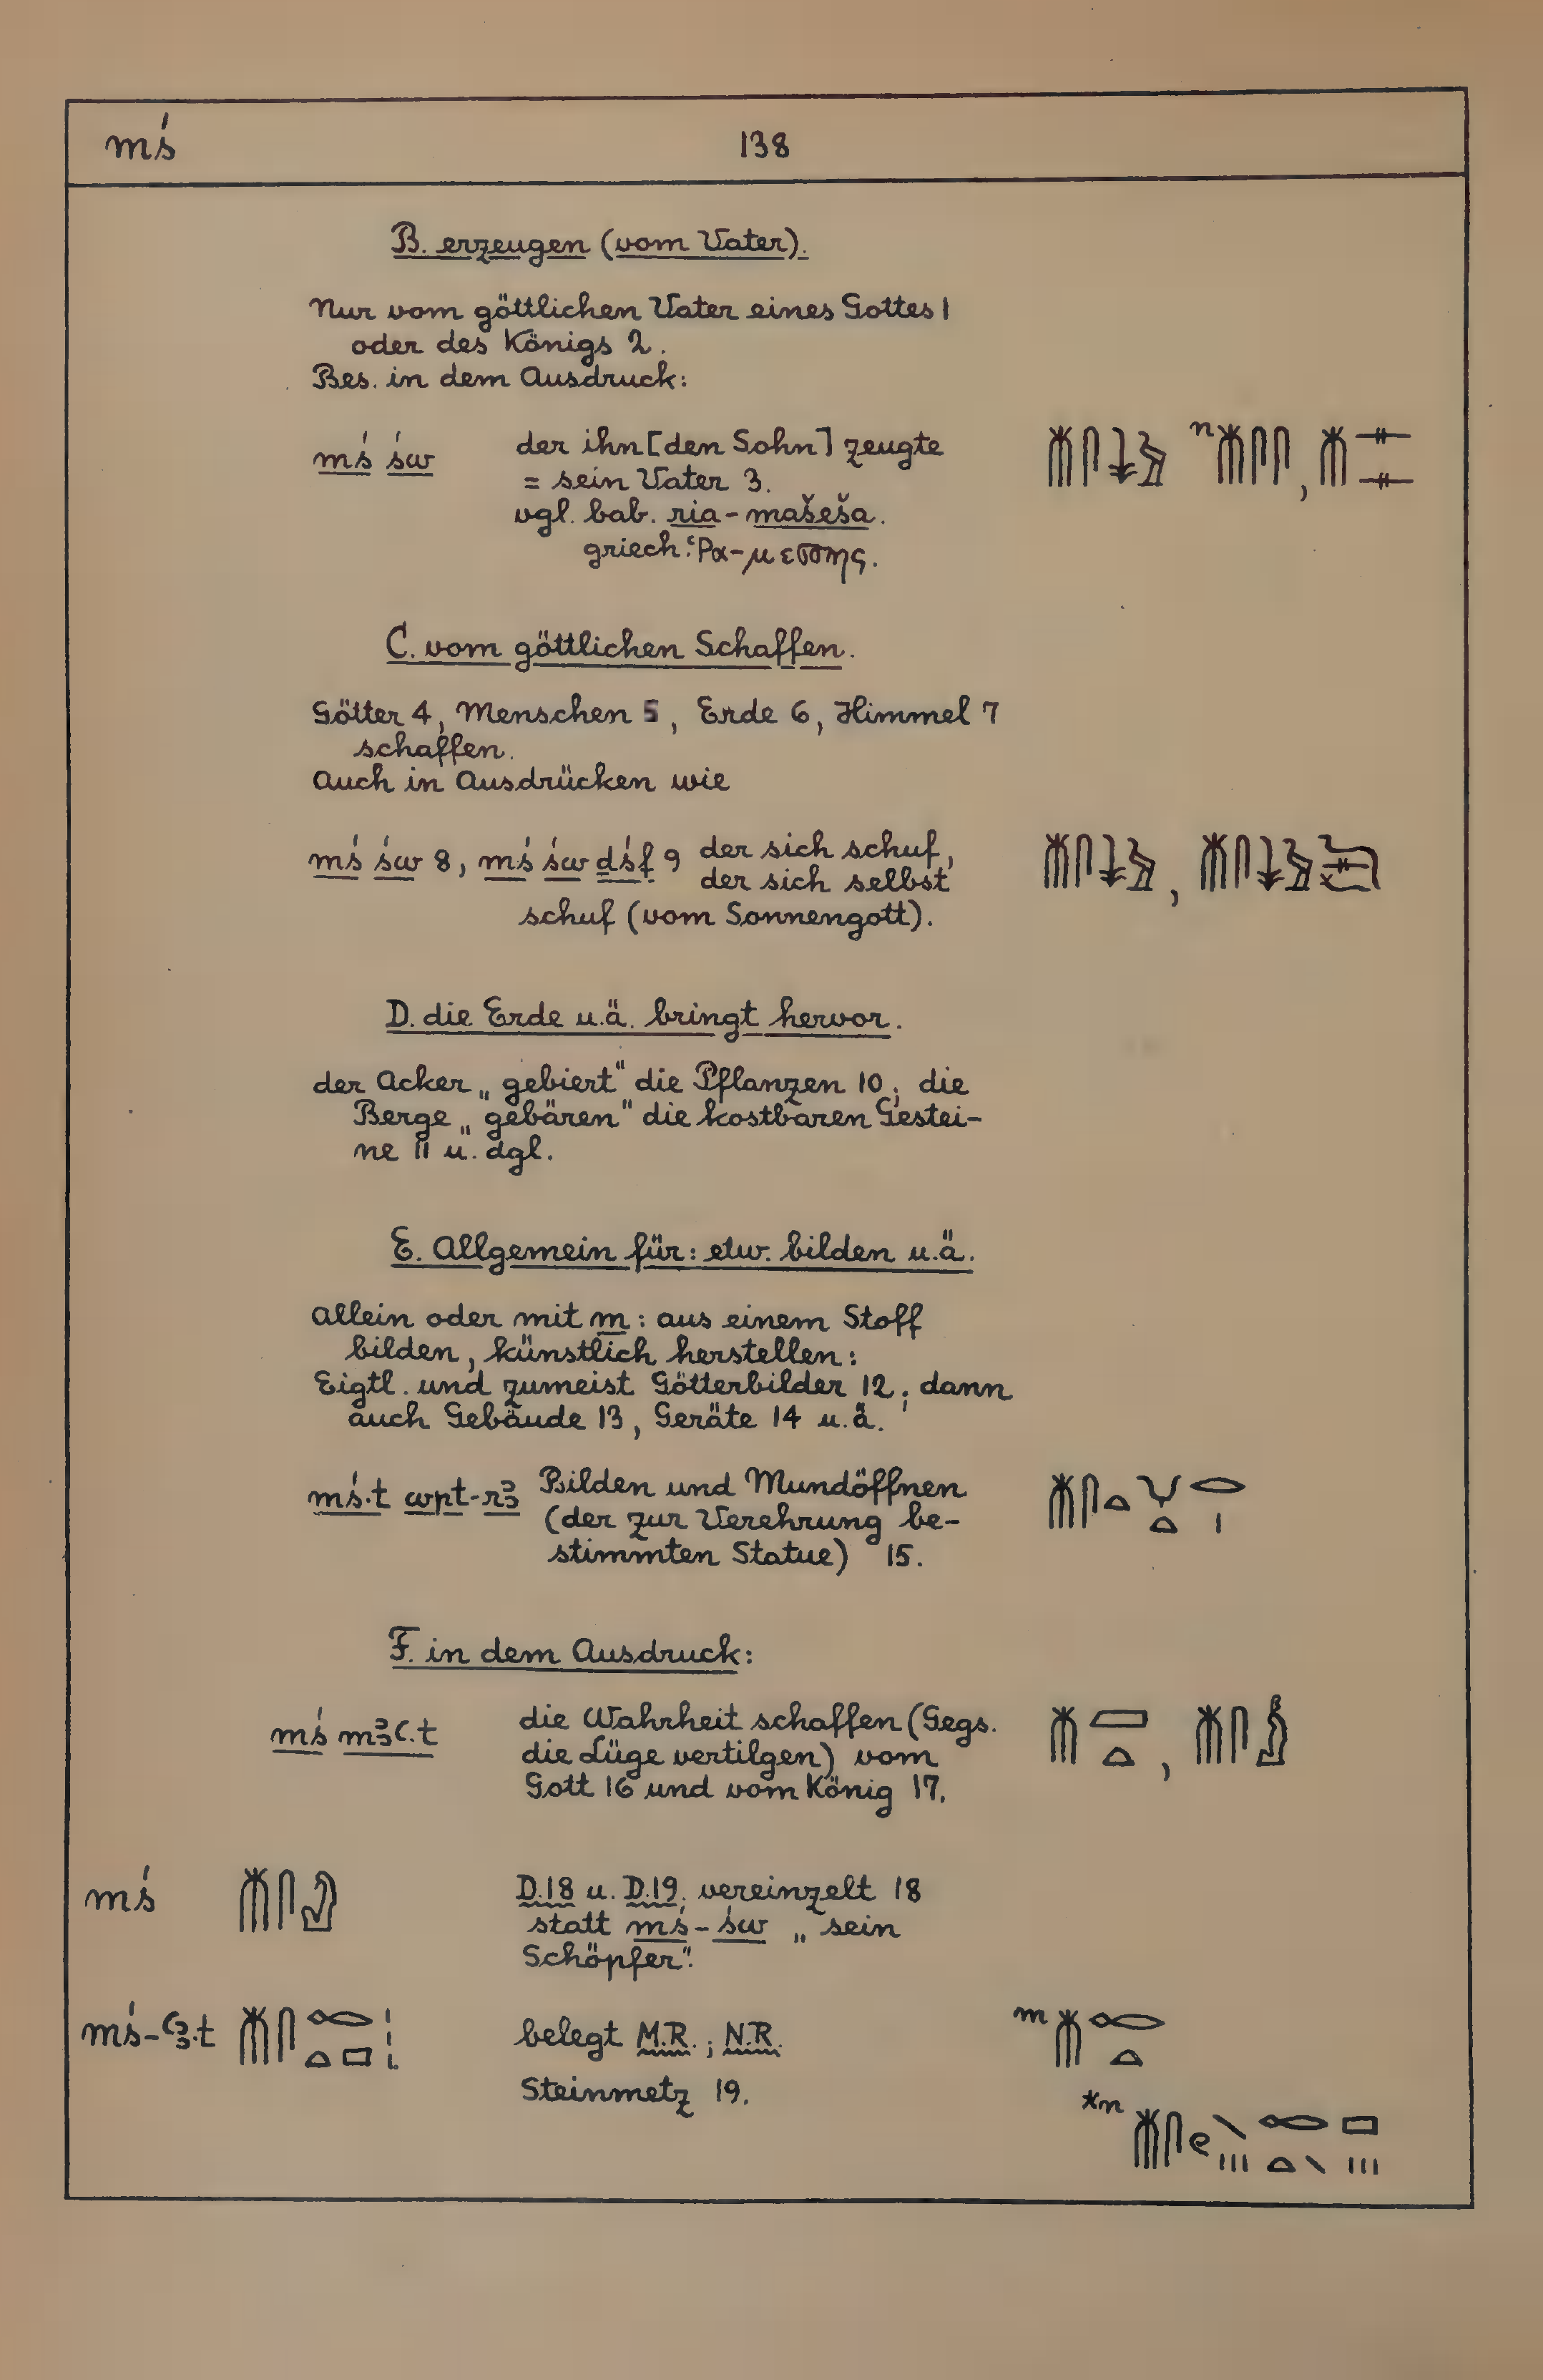 mś 138
B. erzeugen (vom Vater).
Nur vom göttlichen Vater eines Gottes 1
oder des Königs 2.
Bes. in dem Ausdruck:
mś św der ihn [den Sohn] zeugte
= sein Vater 3.
vgl. bab. ria-mašeša.
griech. Ῥα-μεσσης.
C. vom göttlichen Schaffen.
Götter 4, Menschen 5, Erde 6, Himmel 7
schaffen.
Auch in Ausdrücken wie
mś św 8, mś św ḏśf 9 der sich schuf,
der sich selbst
schuf (vom Sonnengott).
D. die Erde u.ä. bringt hervor.
der Acker „gebiert" die Pflanzen 10; die
Berge „gebären" die kostbaren Gestei-
ne 11 u. dgl.
E. Allgemein für: etw. bilden u.ä.
Allein oder mit m: aus einem Stoff
bilden, künstlich herstellen:
Eigtl. und zumeist Götterbilder 12; dann
auch Gebäude 13, Geräte 14 u.ä.
mś·t wpt-rꜣ Bilden und Mundöffnen
(der zur Verehrung be-
stimmten Statue) 15.
F. in dem Ausdruck:
mś mꜣꜥ·t die Wahrheit schaffen (Gegs.
die Lüge vertilgen) vom
Gott 16 und vom König 17.
mś D.18 u. D.19, vereinzelt 18
statt mś-św „sein
Schöpfer".
mś-ꜥꜣ·t belegt M.R.; N.R.
Steinmetz 19.